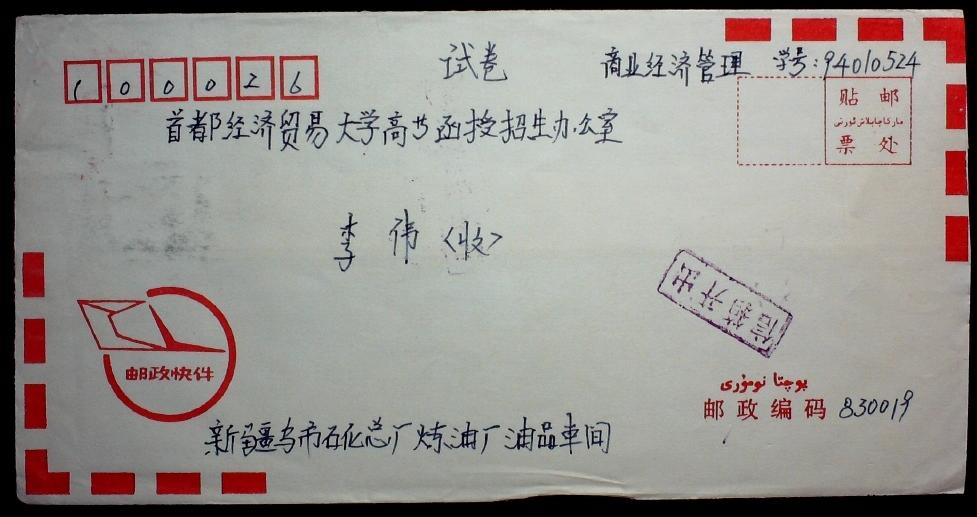 试卷 商业经济管理 学号:94010524
100026
首都经济贸易大学高步函授招生办公室
贴邮
ماركا چاپلاش ئورنى
票处
李 伟〈收〉
信箱开出
邮政快件
پوچتا نومۇرى
邮政编码 830019
新疆乌市石化总厂炼油厂油品车间